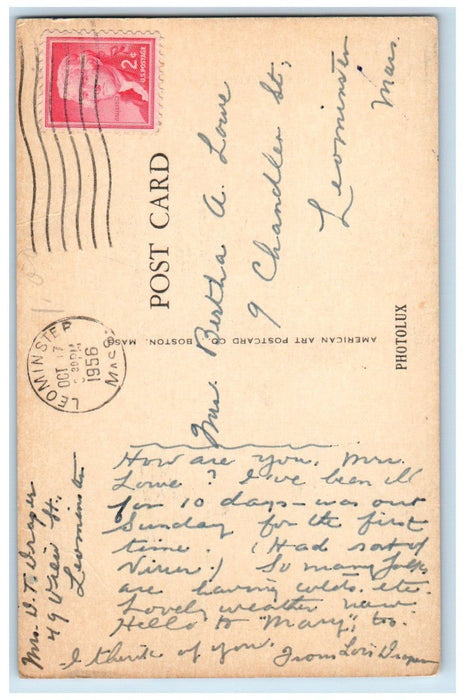 2¢
U.S. POSTAGE
POST CARD
Mrs. Bertha A. Lowe
9 Chandler St.,
Leominster
Mass.
LEOMINSTER
OCT 17
1956
MASS
AMERICAN ART POSTCARD CO. BOSTON, MASS.
PHOTOLUX
How are you, Mrs.
Lowe? I've been ill
for 10 days - was out
Sunday for the first
time. (Had sort of
Virus.) So many folks
are having colds, etc.
Lovely weather now.
Hello to "Mary", too.
I think of you.
From Lois Draper
Mrs. D. T. Draper
49 View St.
Leominster